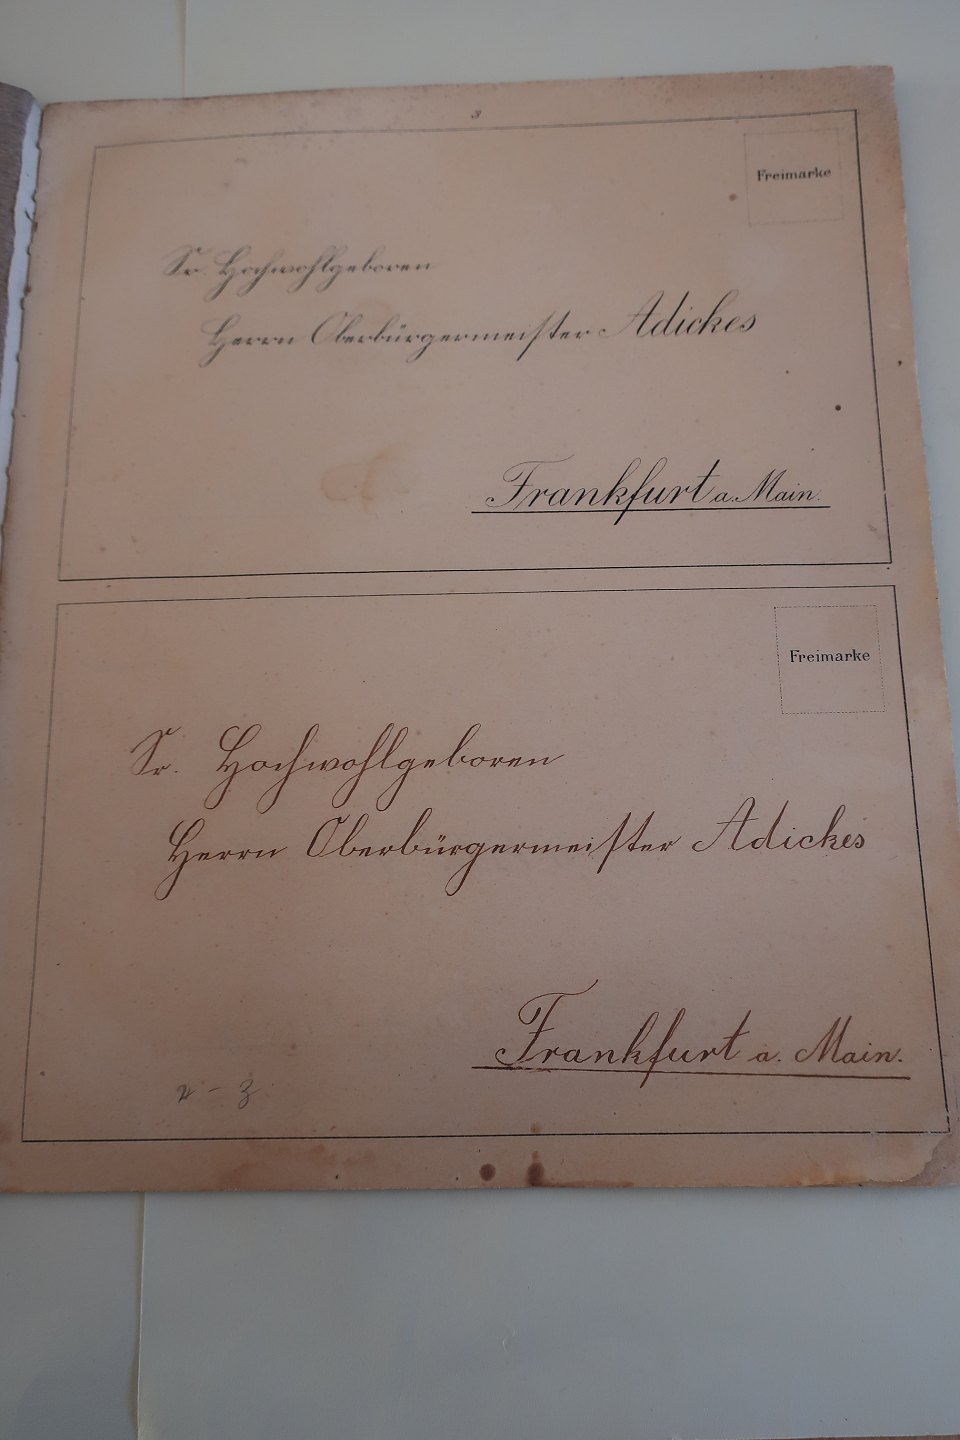 3
Freimarke
Sr. Hochwohlgeboren
Herrn Oberbürgermeister Adickes
Frankfurt a. Main.
Freimarke
Sr. Hochwohlgeboren
Herrn Oberbürgermeister Adickes
Frankfurt a. Main.
2 - 3